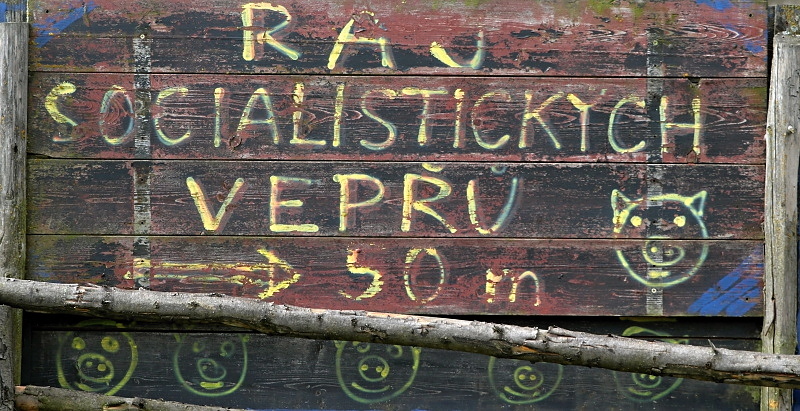 RÁJ
SOCIALISTICKÝCH
VEPŘŮ
→ 50 m